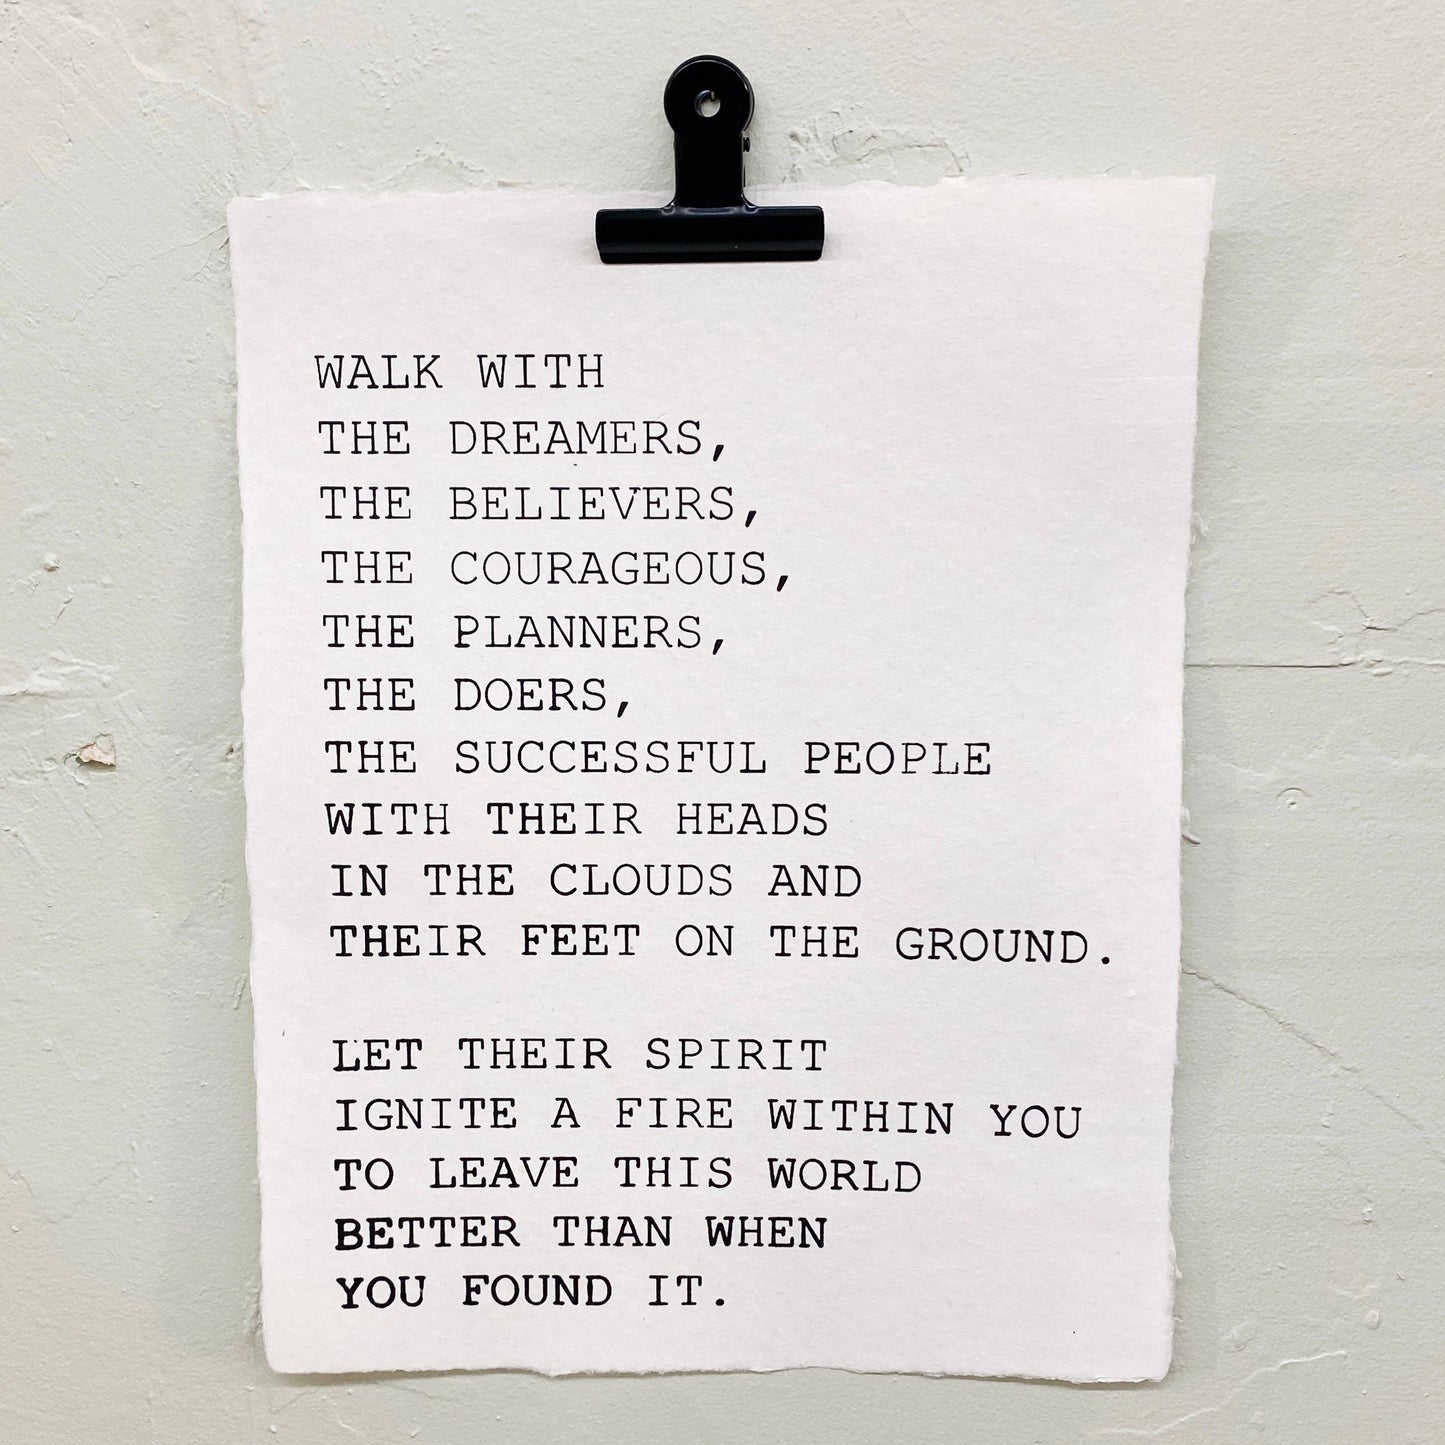 WALK WITH
THE DREAMERS,
THE BELIEVERS,
THE COURAGEOUS,
THE PLANNERS,
THE DOERS,
THE SUCCESSFUL PEOPLE
WITH THEIR HEADS
IN THE CLOUDS AND
THEIR FEET ON THE GROUND.
LET THEIR SPIRIT
IGNITE A FIRE WITHIN YOU
TO LEAVE THIS WORLD
BETTER THAN WHEN
YOU FOUND IT.